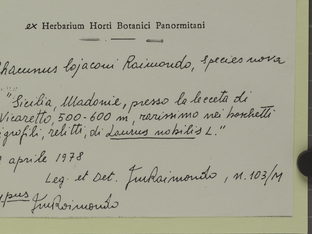 ex Herbarium Horti Botanici Panormitani
Rhamnus lojaconi Raimondo, species nova
"Sicilia, Madonie, presso la lecceta di
Vicaretto, 500-600 m, rarissimo nei boschetti
igrofili, relitti, di Laurus nobilis L."
aprile 1978
Leg. et Det. Raimondo, n. 103/M
ypus Raimondo